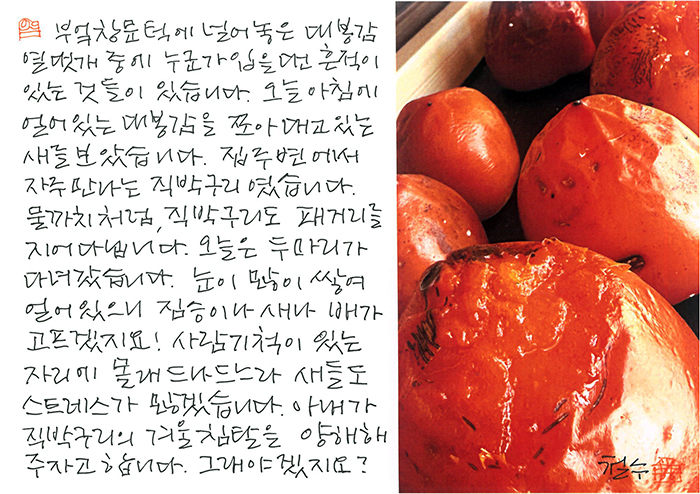 부엌창문턱에 널어놓은 대봉감
열댓개 중에 누군가 입을 댄 흔적이
있는 것들이 있습니다. 오늘 아침에
얼어있는 대봉감을 쪼아대고 있는
새들 보았습니다. 집주변에서
자주 만나는 직박구리였습니다.
물까치처럼, 직박구리도 패거리를
지어다닙니다. 오늘은 두마리가
다녀갔습니다. 눈이 많이 쌓여
얼어있으니 짐승이나 새나 배가
고프겠지요! 사람기척이 있는
자리에 몰래 드나드느라 새들도
스트레스가 많겠습니다. 아내가
직박구리의 겨울침탈을 양해해
주자고 합니다. 그래야겠지요?
철수